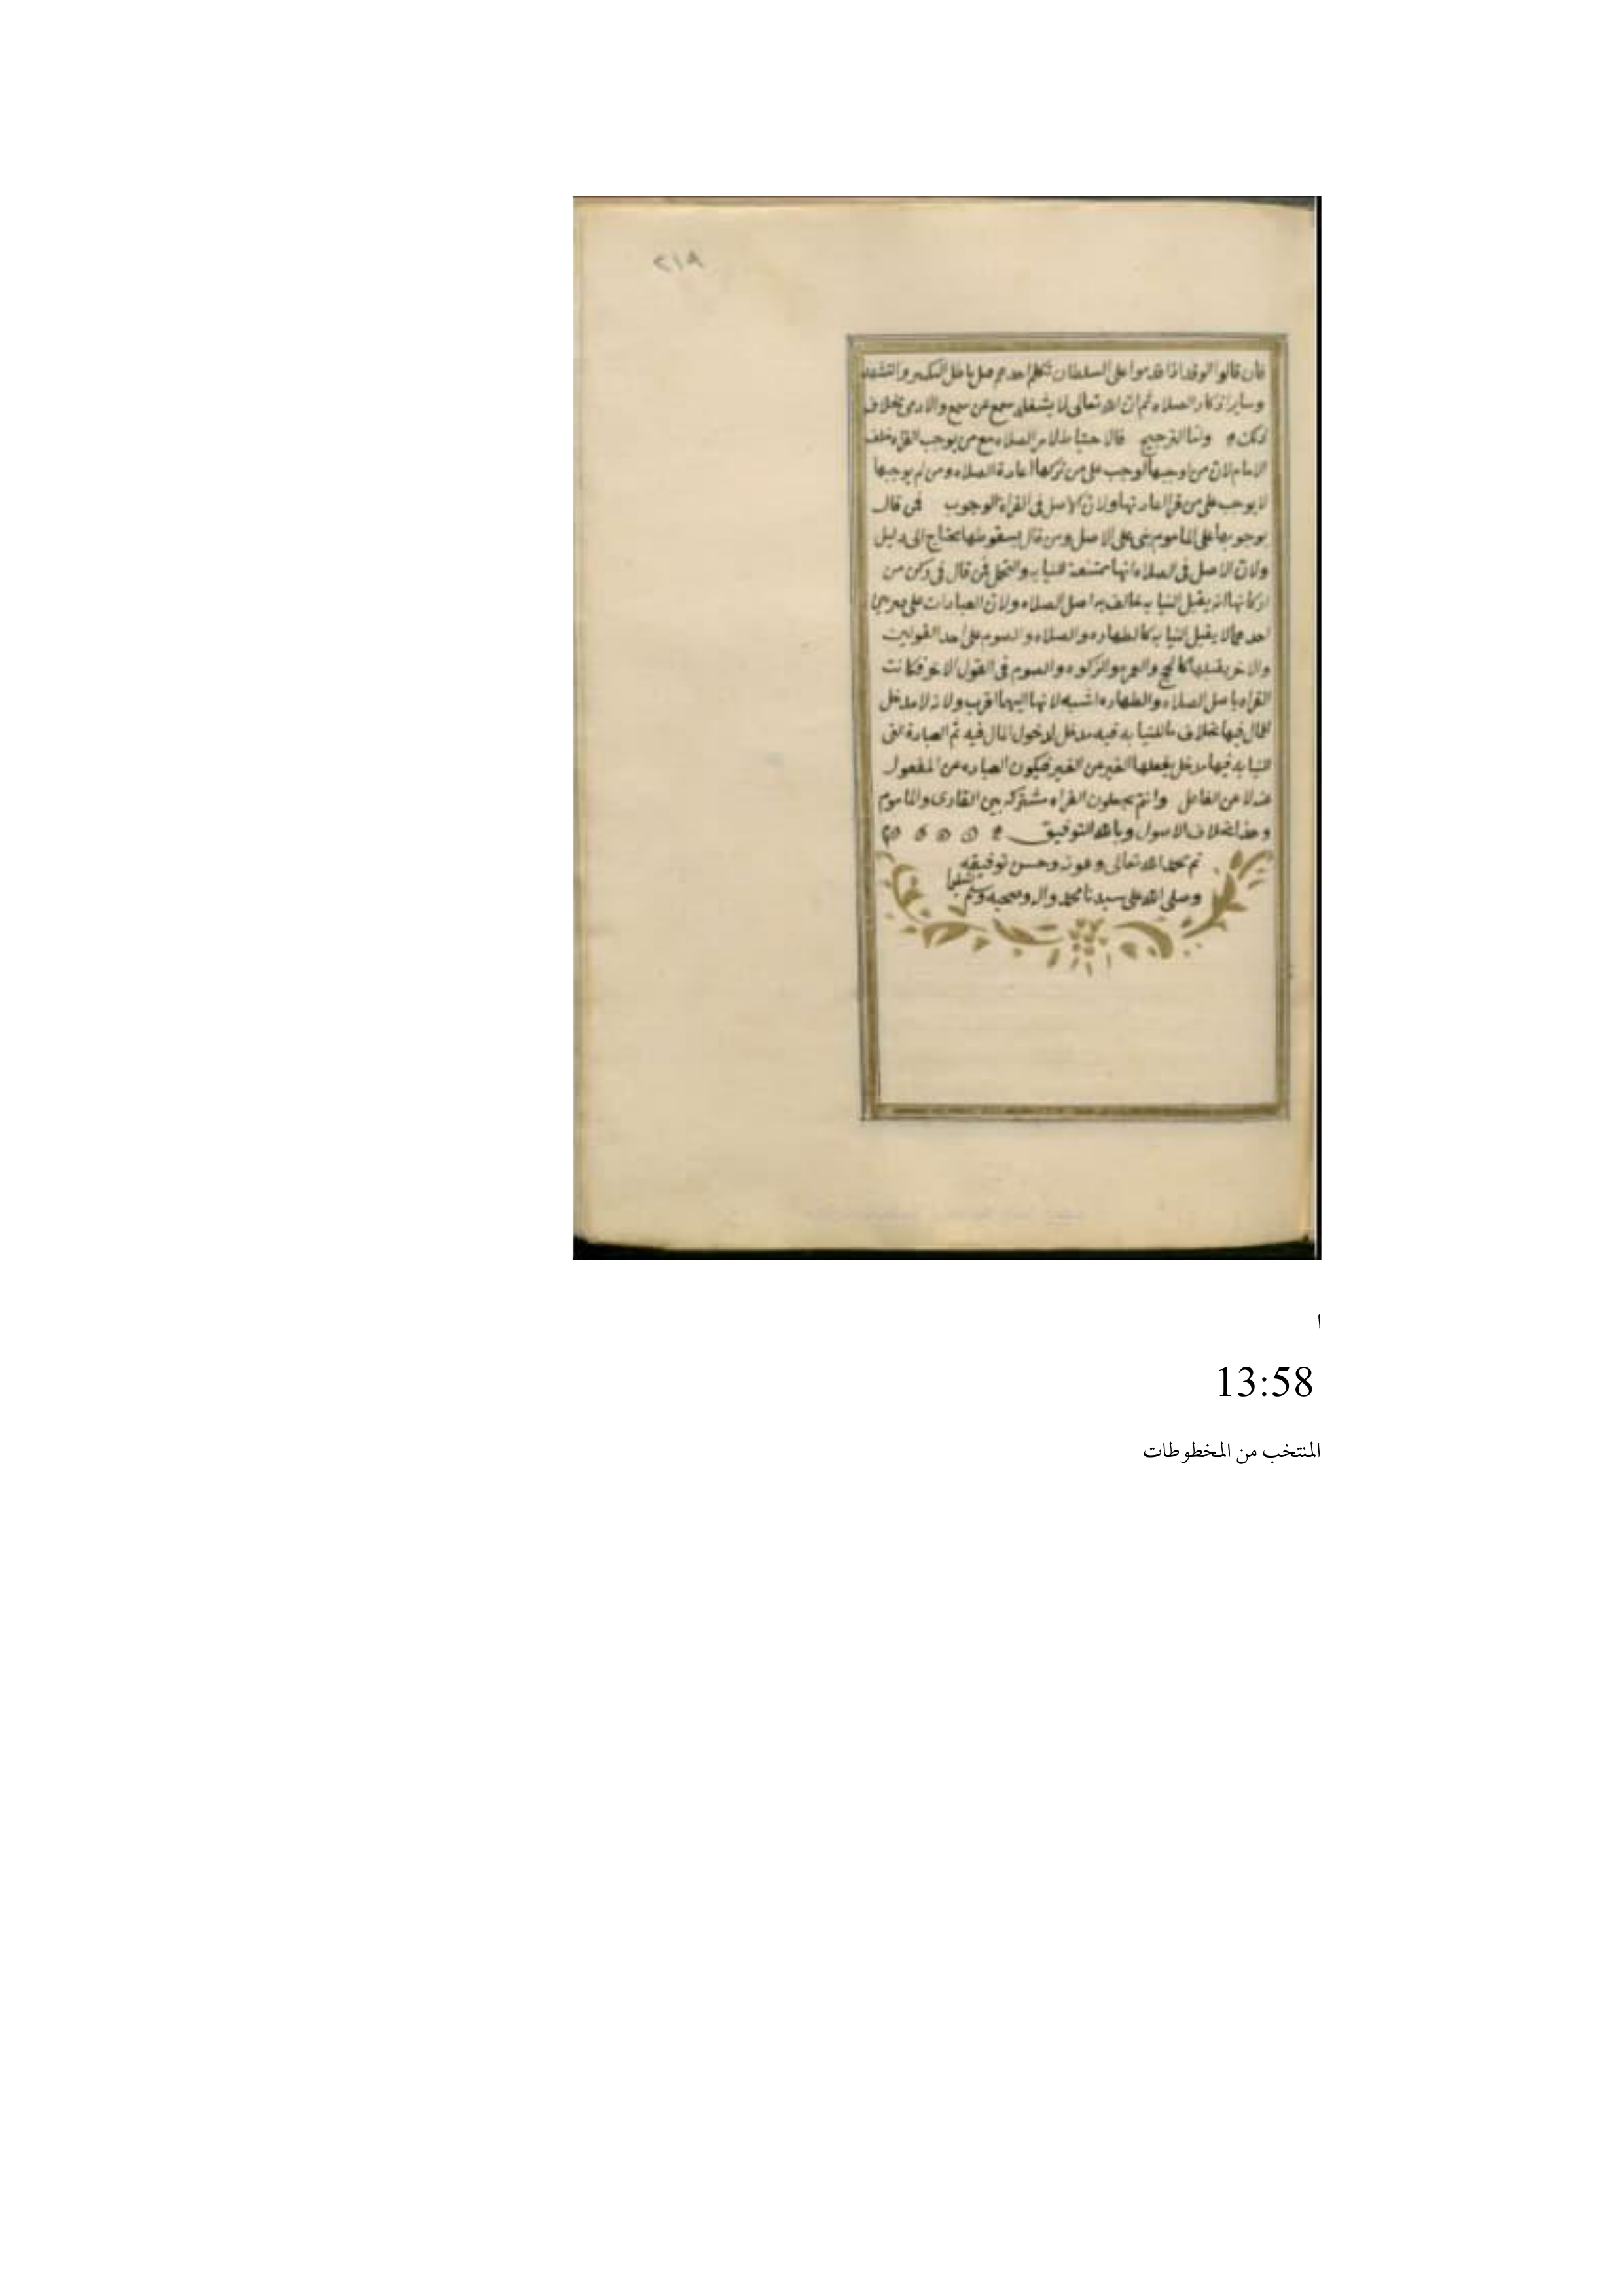 ٢١٨
فان قالوا الوفد اذا قدموا على السلطان تكلم احدهم بطل بالتكبير والتشهد
وساير اذكار الصلاه ثم ان الله تعالى لا يشغله سمع عن سمع والادمى بخلاف
ذلك واما الترجيح فالاحتياط لامر الصلاه مع من يوجب القراه خلف
الامام لان من اوجبها اوجب على من تركها اعادة الصلاه ومن لم يوجبها
لا يوجب على من قرا اعادتها ولان الاصل فى القراه الوجوب فمن قال
بوجوبها على الماموم بنى على الاصل ومن قال بسقوطها يحتاج الى دليل
ولان الاصل فى الصلاه انها ممتنعة النيابه والتحمل فمن قال فى ركن من
اركانها انه يقبل النيابه خالف به اصل الصلاه ولان العبادات على ضربين
احدهما لا يقبل النيابه كالطهاره والصلاه والصوم على احد القولين
والاخر يقبلها كالحج والعمره والزكوه والصوم فى القول الاخر فكانت
القراه باصل الصلاه والطهاره اشبه لانها اليهما اقرب ولانه لا مدخل
للمال فيها بخلاف ما للنيابه فيه مدخل لدخول المال فيه ثم العبادة التى
للنيابه فيها مدخل يفعلها الغير عن الغير فيكون العباده عن المفعول
عنه لا عن الفاعل وانتم تجعلون القراه مشتركه بين القارى والماموم
وهذا بخلاف الاصول وبالله التوفيق
تم بحمد الله تعالى وعونه وحسن توفيقه
وصلى الله على سيدنا محمد واله وصحبه وسلم تسليما
ا
13:58
المنتخب من المخطوطات